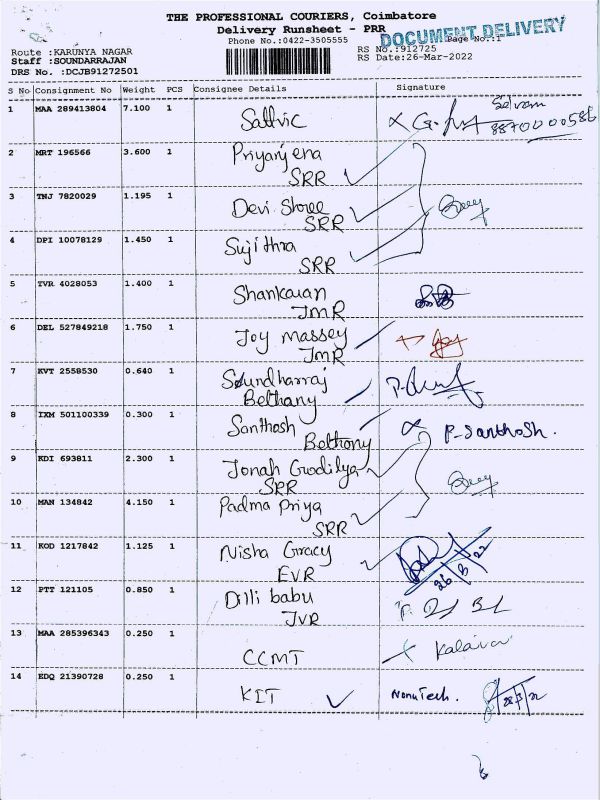 THE PROFESSIONAL COURIERS, Coimbatore
Delivery Runsheet - PRR
DOCUMENT DELIVERY
Phone No.:0422-3505555 Page No.:1
Route :KARUNYA NAGAR RS No.:912725
Staff :SOUNDARRAJAN RS Date:26-Mar-2022
DRS No. :DCJB91272501
S No Consignment No Weight PCS Consignee Details Signature
1 MAA 289413804 7.100 1 Sathvic Selvam
8870000586
2 MRT 196566 3.600 1 Priyanjena
SRR
3 TNJ 7820029 1.195 1 Devi Shree
SRR
4 DPI 10078129 1.450 1 Sujithra
SRR
5 TVR 4028053 1.400 1 Shankaran
JMR
6 DEL 527849218 1.750 1 Joy Massey
JMR
7 KVT 2558530 0.640 1 Soundharraj
Bethany
8 IXM 501100339 0.300 1 Santhosh P-Santhosh.
Bethony
9 KDI 693811 2.300 1 Jonah
SRR
10 MAN 134842 4.150 1 Padma Priya
SRR
11 KOD 1217842 1.125 1 Nisha Gracy
EVR 26/3/22
12 PTT 121105 0.850 1 Dilli babu
JVR
13 MAA 285396343 0.250 1 CCMT
14 EDQ 21390728 0.250 1 KIT